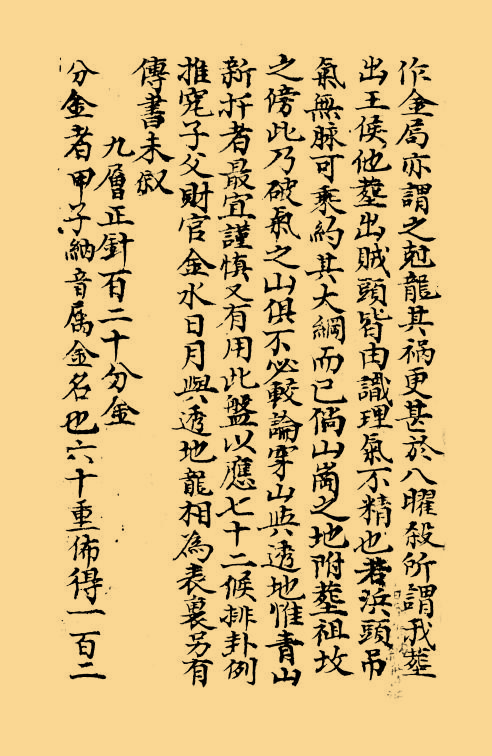 作金局亦謂之尅龍其禍更甚於八曜殺所謂我塟
出王侯他塟出賊頭皆由識理氣不精也若浜頭吊
氣無脉可乘約其大綱而已倘山崗之地附塟祖坟
之傍此乃破氣之山俱不必較論穿山與透地惟青山
新扦者最宜謹慎又有用此盤以應七十二候排卦例
推究子父財官金水日月與透地龍相為表裏另有
傳書未叙
九層正針百二十分金
分金者甲子納音属金名也六十重佈得一百二